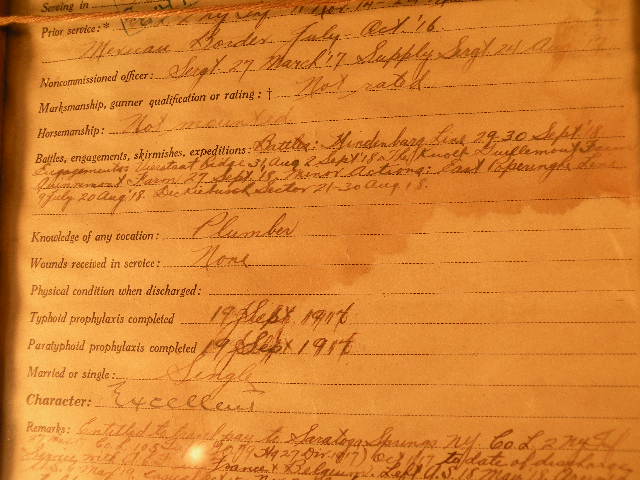 Serving in
Prior service:*
Mexican Border July - Oct '16.
Noncommissioned officer: Sergt 27 March '17 Supply Sergt 24 Aug '17
Marksmanship, gunner qualification or rating: † Not rated
Horsemanship: Not mounted
Battles, engagements, skirmishes, expeditions: Battles: Hindenburg Line 29-30 Sept '18
Engagements: Vierstraat Ridge 31 Aug 2 Sept '18 The Knoll Guillemont Farm
Quinnemont Farm 27 Sept. 18. Minor Actions: East Poperinghe Line
9 July 20 Aug '18. Dickiebusch Sector 21-30 Aug. 18.
Knowledge of any vocation: Plumber
Wounds received in service: None
Physical condition when discharged:
Typhoid prophylaxis completed 19 Sept 1917
Paratyphoid prophylaxis completed 19 Sept 1917
Married or single: Single
Character: Excellent
Remarks: Entitled to travel pay to Saratoga Springs N.Y. Co. L, 2 N.Y. Inf
27 Div. 1917) Oct 1 '17 to date of discharge
Service with A.E.F. France & Belgium. Left U.S. 18 May '18